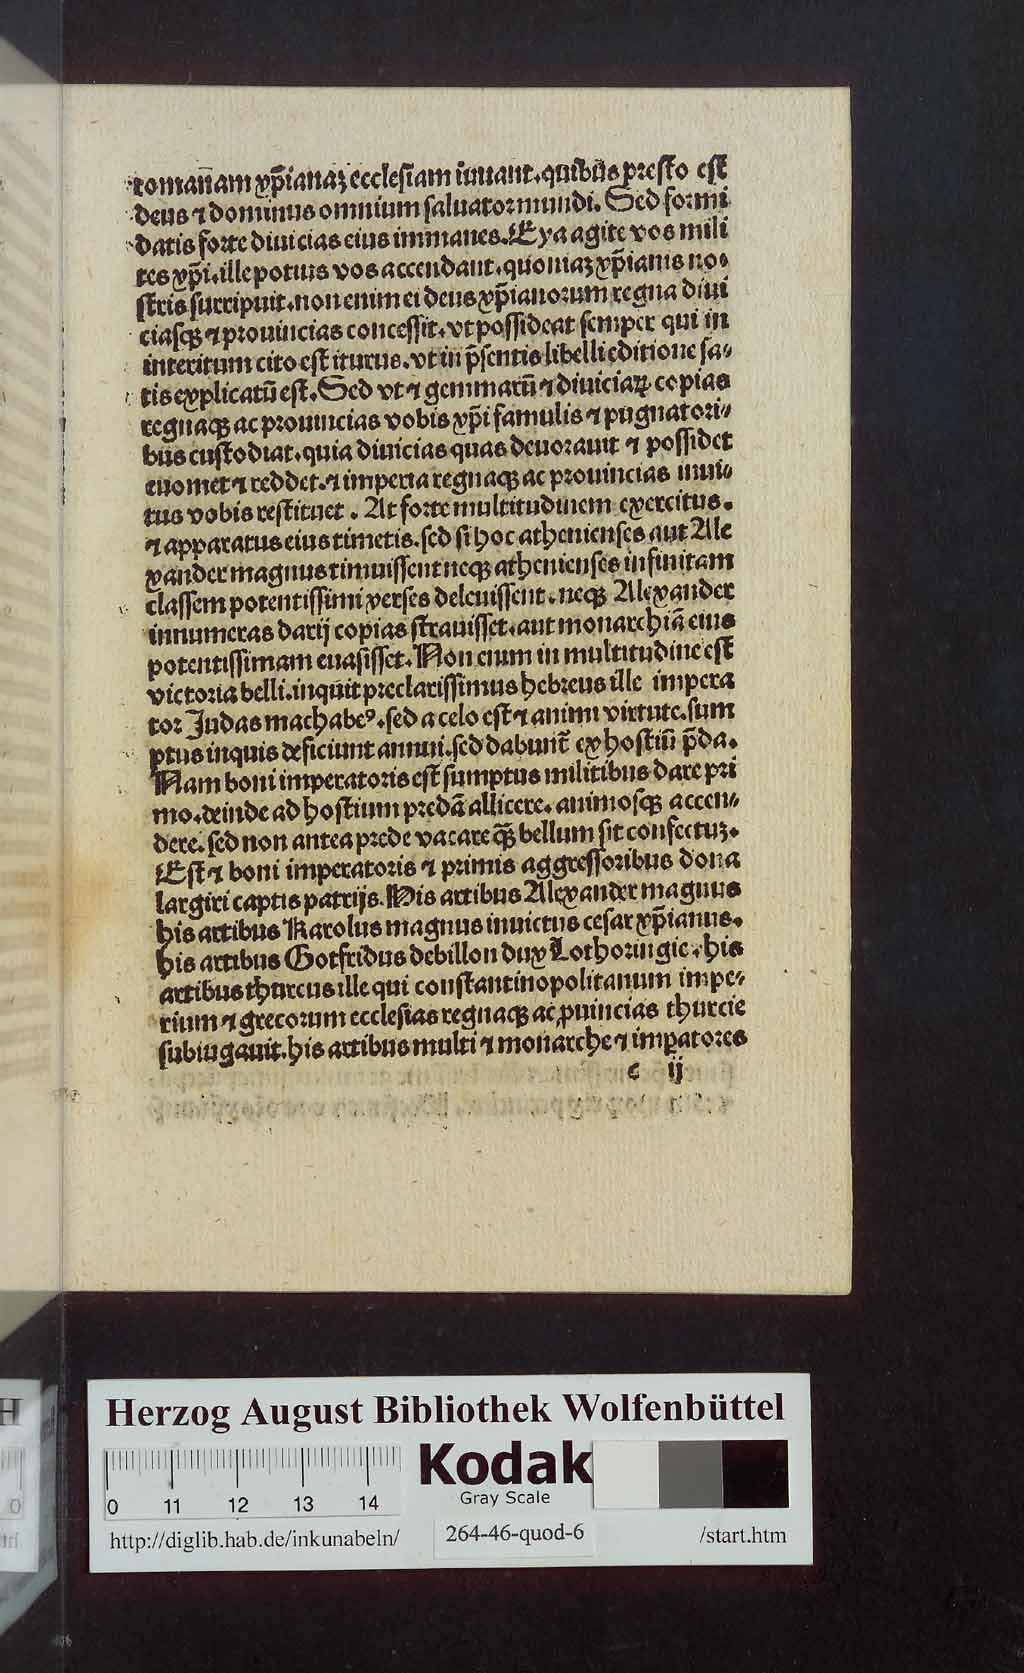 romanāam xp̄ianaꝫ ecclesiam iuuant. quibus presto est
deus ⁊ dominus omnium saluator mundi. Sed formi
datis forte diuicias eius immanes. Eya agite vos mili
tes xp̄i. ille potius vos accendant. quoniaꝫ xp̄ianis no-
stris surripuit. non enim ei deus xp̄ianorum regna diui
ciasqꝫ ⁊ prouincias concessit. vt possideat semper qui in
interitum cito est iturus. vt in p̄sentis libelli editione sa-
tis explicatū est. Sed vt ⁊ gemmarū ⁊ diuiciaꝝ copias
regnaqꝫ ac prouincias vobis xp̄i famulis ⁊ pugnatori-
bus custodiat. quia diuicias quas deuorauit ⁊ possidet
euomet ⁊ reddet. ⁊ imperia regnaqꝫ ac prouincias inui-
tus vobis restituet. At forte multitudinem exercitus.
⁊ apparatus eius timetis. sed si hoc athenienses aut Ale
xander magnus timuissent neqꝫ athenienses infinitam
classem potentissimi xerses deleuissent. neqꝫ Alexander
innumeras darij copias strauisset. aut monarchiā eius
potentissimam euasisset. Non eium in multitudine est
victoria belli. inquit preclarissimus hebreus ille impera
tor Judas machabeꝰ. sed a celo est ⁊ animi virtute. sum
ptus inquis deficiunt annui. sed dabunt̄ ex hostiū p̄da.
Nam boni imperatoris est sumptus militibus dare pri
mo. deinde ad hostium predā allicere. animosqꝫ accen-
dere. sed non antea prede vacare q̄ꝫ bellum sit confectuꝫ.
Est ⁊ boni imperatoris ⁊ primis aggressoribus dona
largiri captis patrijs. His artibus Alexander magnus
his artibus Karolus magnus inuictus cesar xp̄ianus.
his artibus Gotfridus debillon dux Lothoringie. his
artibus thurcus ille qui constantinopolitanum impe-
rium ⁊ grecorum ecclesias regnaqꝫ ac ꝓuincias thurcie
subiugauit. his artibus multi ⁊ monarche ⁊ imꝑatores
c ij
Herzog August Bibliothek Wolfenbüttel
Kodak
Gray Scale
0 11 12 13 14
http://diglib.hab.de/inkunabeln/ 264-46-quod-6 /start.htm